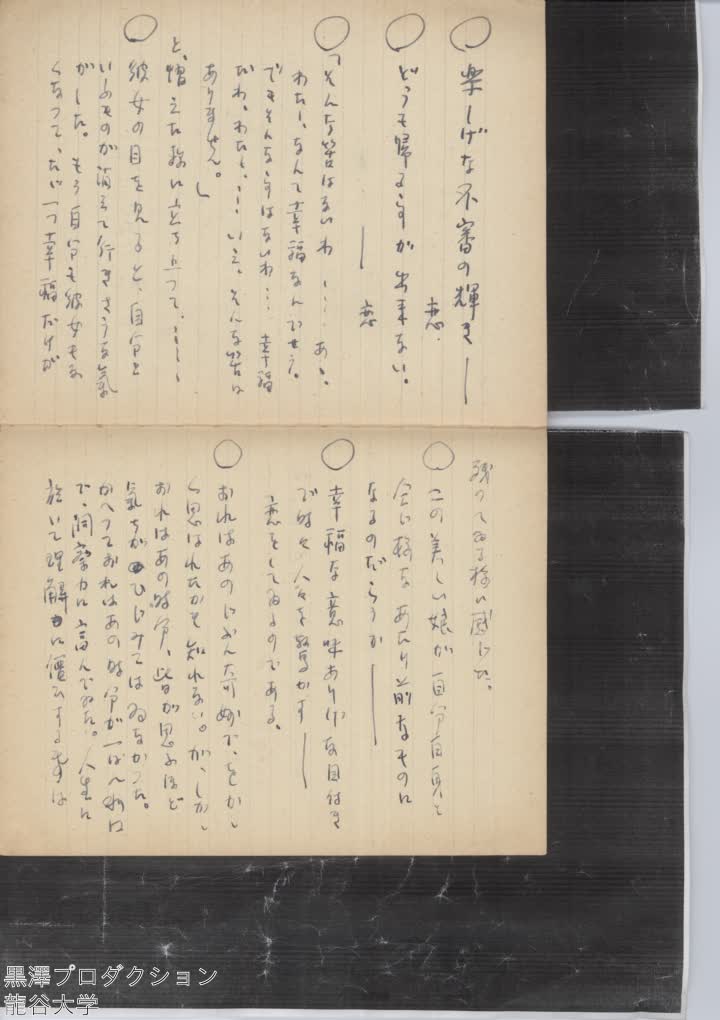 ○ 楽しげな不審の輝き――
恋.
○ どうも帰る事が出来ない。
―― 恋
○ 「そんな筈はないわ……あゝ、
わたし、なんて幸福なんでせう。
でもそんな事はないわ… 幸福
だわ、わたし、… いゝえ、そんな筈は
ありません。」
と、憎えた様に立ち上って、……
○ 彼女の目を見ると、自分と
いふものが消えて行きさうな氣
がした。もう自分も彼女もな
くなって、たゞ一つ幸福だけが
残ってゐる様に感じた。
○ この美しい娘が自分自身と
全じ様なあたり前なものに
なるのだらうか――
○ 幸福な意味ありげな目付き
で時々人々を驚かす――
恋をしてゐるのである。
○ おれはあのじぶん奇妙で、をかし
く思はれたかも知れない。が、しかし
おれはあの時分、皆が思ふほど
気ちがひじみてはゐなかった。
かへっておれはあの時分が一ばん利口
で、洞察力に富んでゐた。人生に
於いて理解に價する事は
黒澤プロダクション
龍谷大学